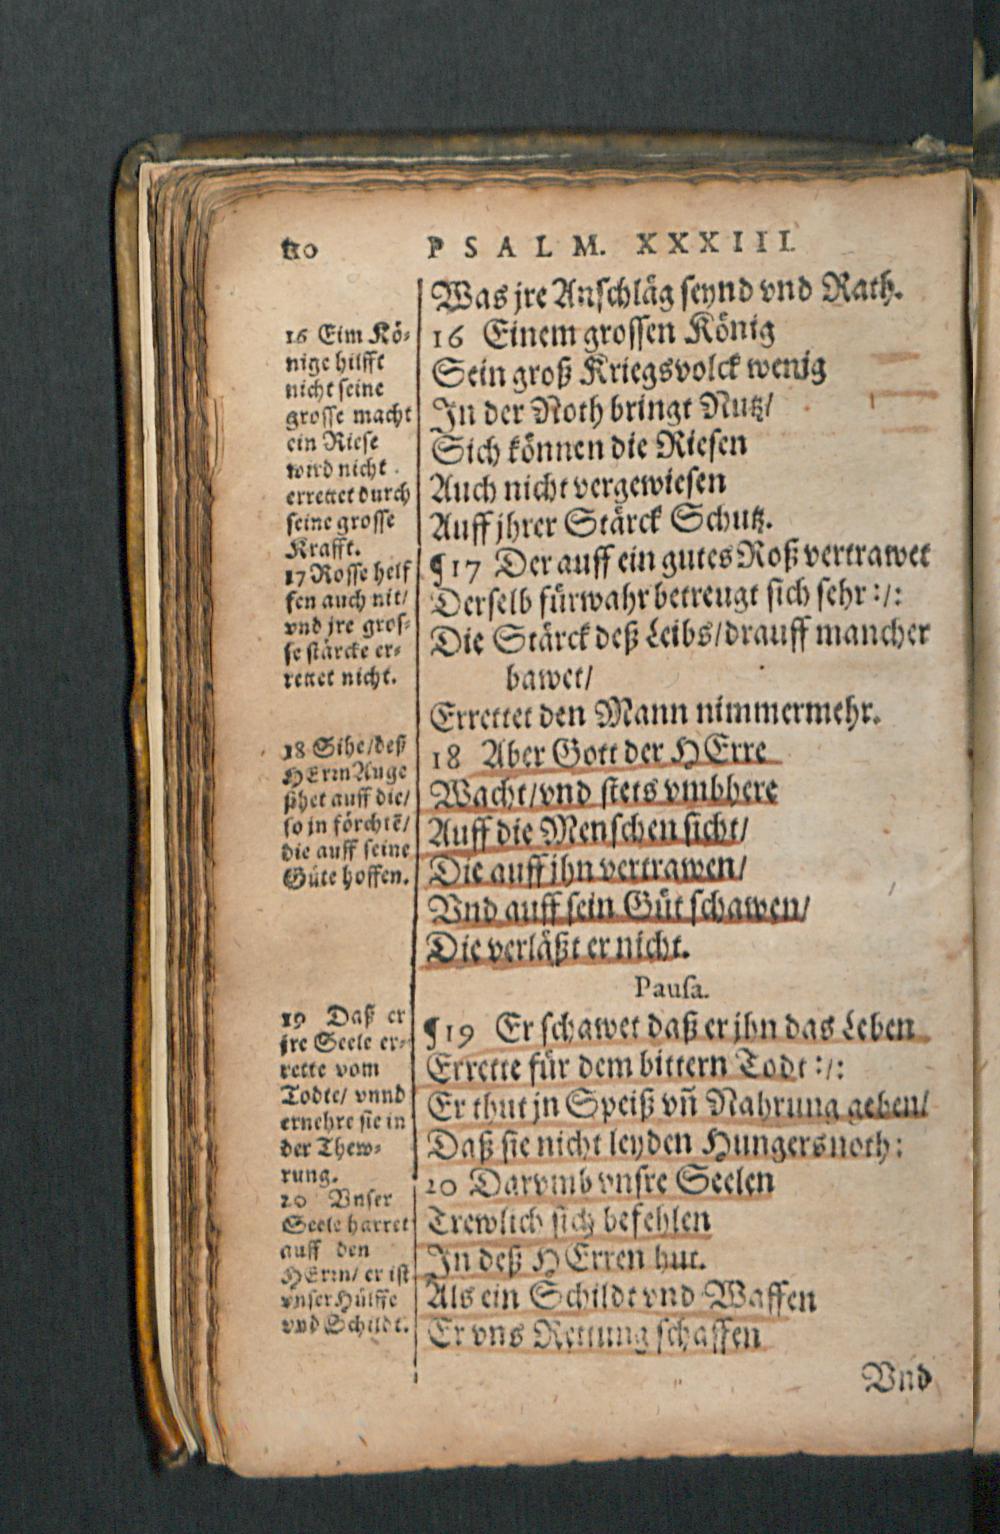 PSALM. XXXIII.
Was jre Anschläg seynd vnd Rath.
16 Einem grossen König
Sein groß Kriegsvolck wenig
In der Noth bringt Nutz/
Sich können die Riesen
Auch nicht vergewiesen
Auff jhrer Stärck Schutz.
¶17 Der auff ein gutes Roß vertrawet
Derselb fürwahr betreugt sich sehr :/:
Die Stärck deß Leibs/drauff mancher
bawet/
Errettet den Mann nimmermehr.
18 Aber Gott der HErre
Wacht/vnd stets vmbhere
Auff die Menschen sicht/
Die auff jhn vertrawen/
Vnd auff sein Güt schawen/
Die verläßt er nicht.
Pausa.
¶19 Er schawet daß er jhn das Leben
Errette für dem bittern Todt :/:
Er thut jn Speiß vñ Nahrung geben/
Daß sie nicht leyden Hungersnoth:
20 Darvmb vnsre Seelen
Trewlich sich befehlen
In deß HErren hut.
Als ein Schildt vnd Waffen
Er vns Rettung schaffen
Vnd
16 Eim Kö-
nige hilfft
nicht seine
grosse macht
ein Riese
wird nicht
errettet durch
seine grosse
Krafft.
17 Rosse helf
fen auch nit/
vnd jre gros-
se stärcke er-
rettet nicht.
18 Sihe/deß
HErrn Auge
sihet auff die/
so jn förchtē/
die auff seine
Güte hoffen.
19 Daß er
jre Seele er-
rette vom
Todte/ vnnd
ernehre sie in
der Thew-
rung.
20 Vnser
Seele harret
auff den
HErrn/ er ist
vnser Hülffe
vnd Schildt.